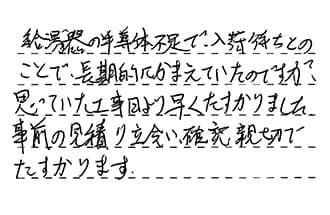 給湯器の半導体不足で、入荷待ちとの
ことで、長期的にかまえていたのですが、
思っていた工事日より早くたすかりました。
事前の見積り立会い、確認、親切で
たすかります。